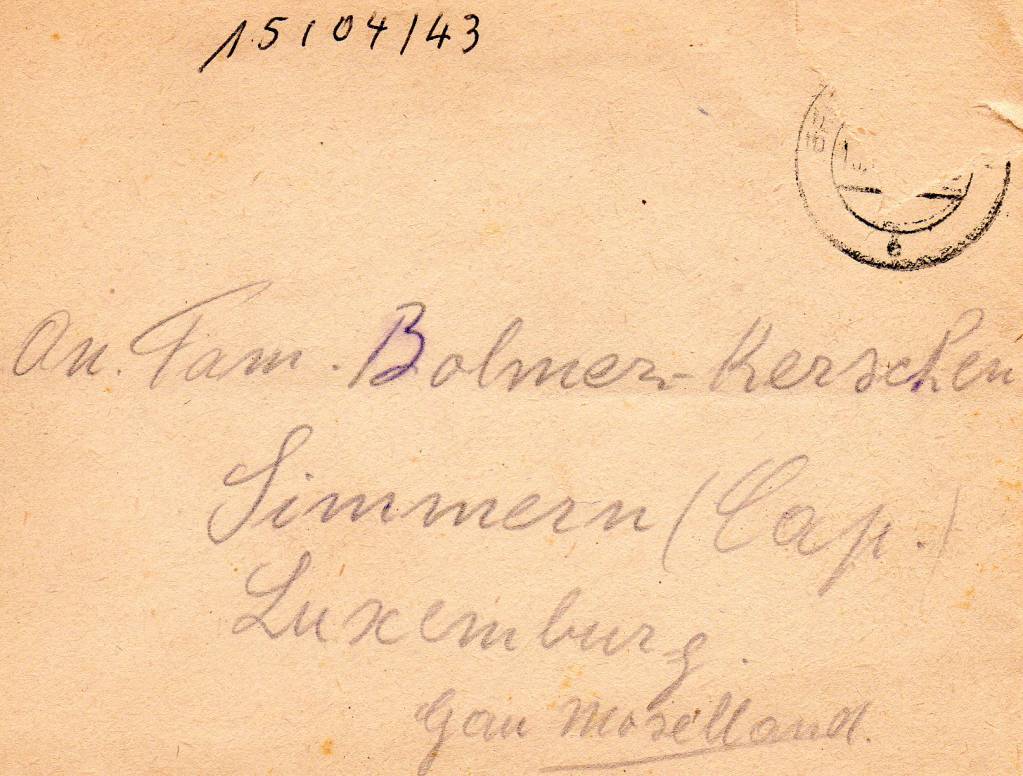 15/04/43
An. Fam. Bolmer-Kerschen
Simmern (Cap.)
Luxemburg.
Gau Moselland.
e